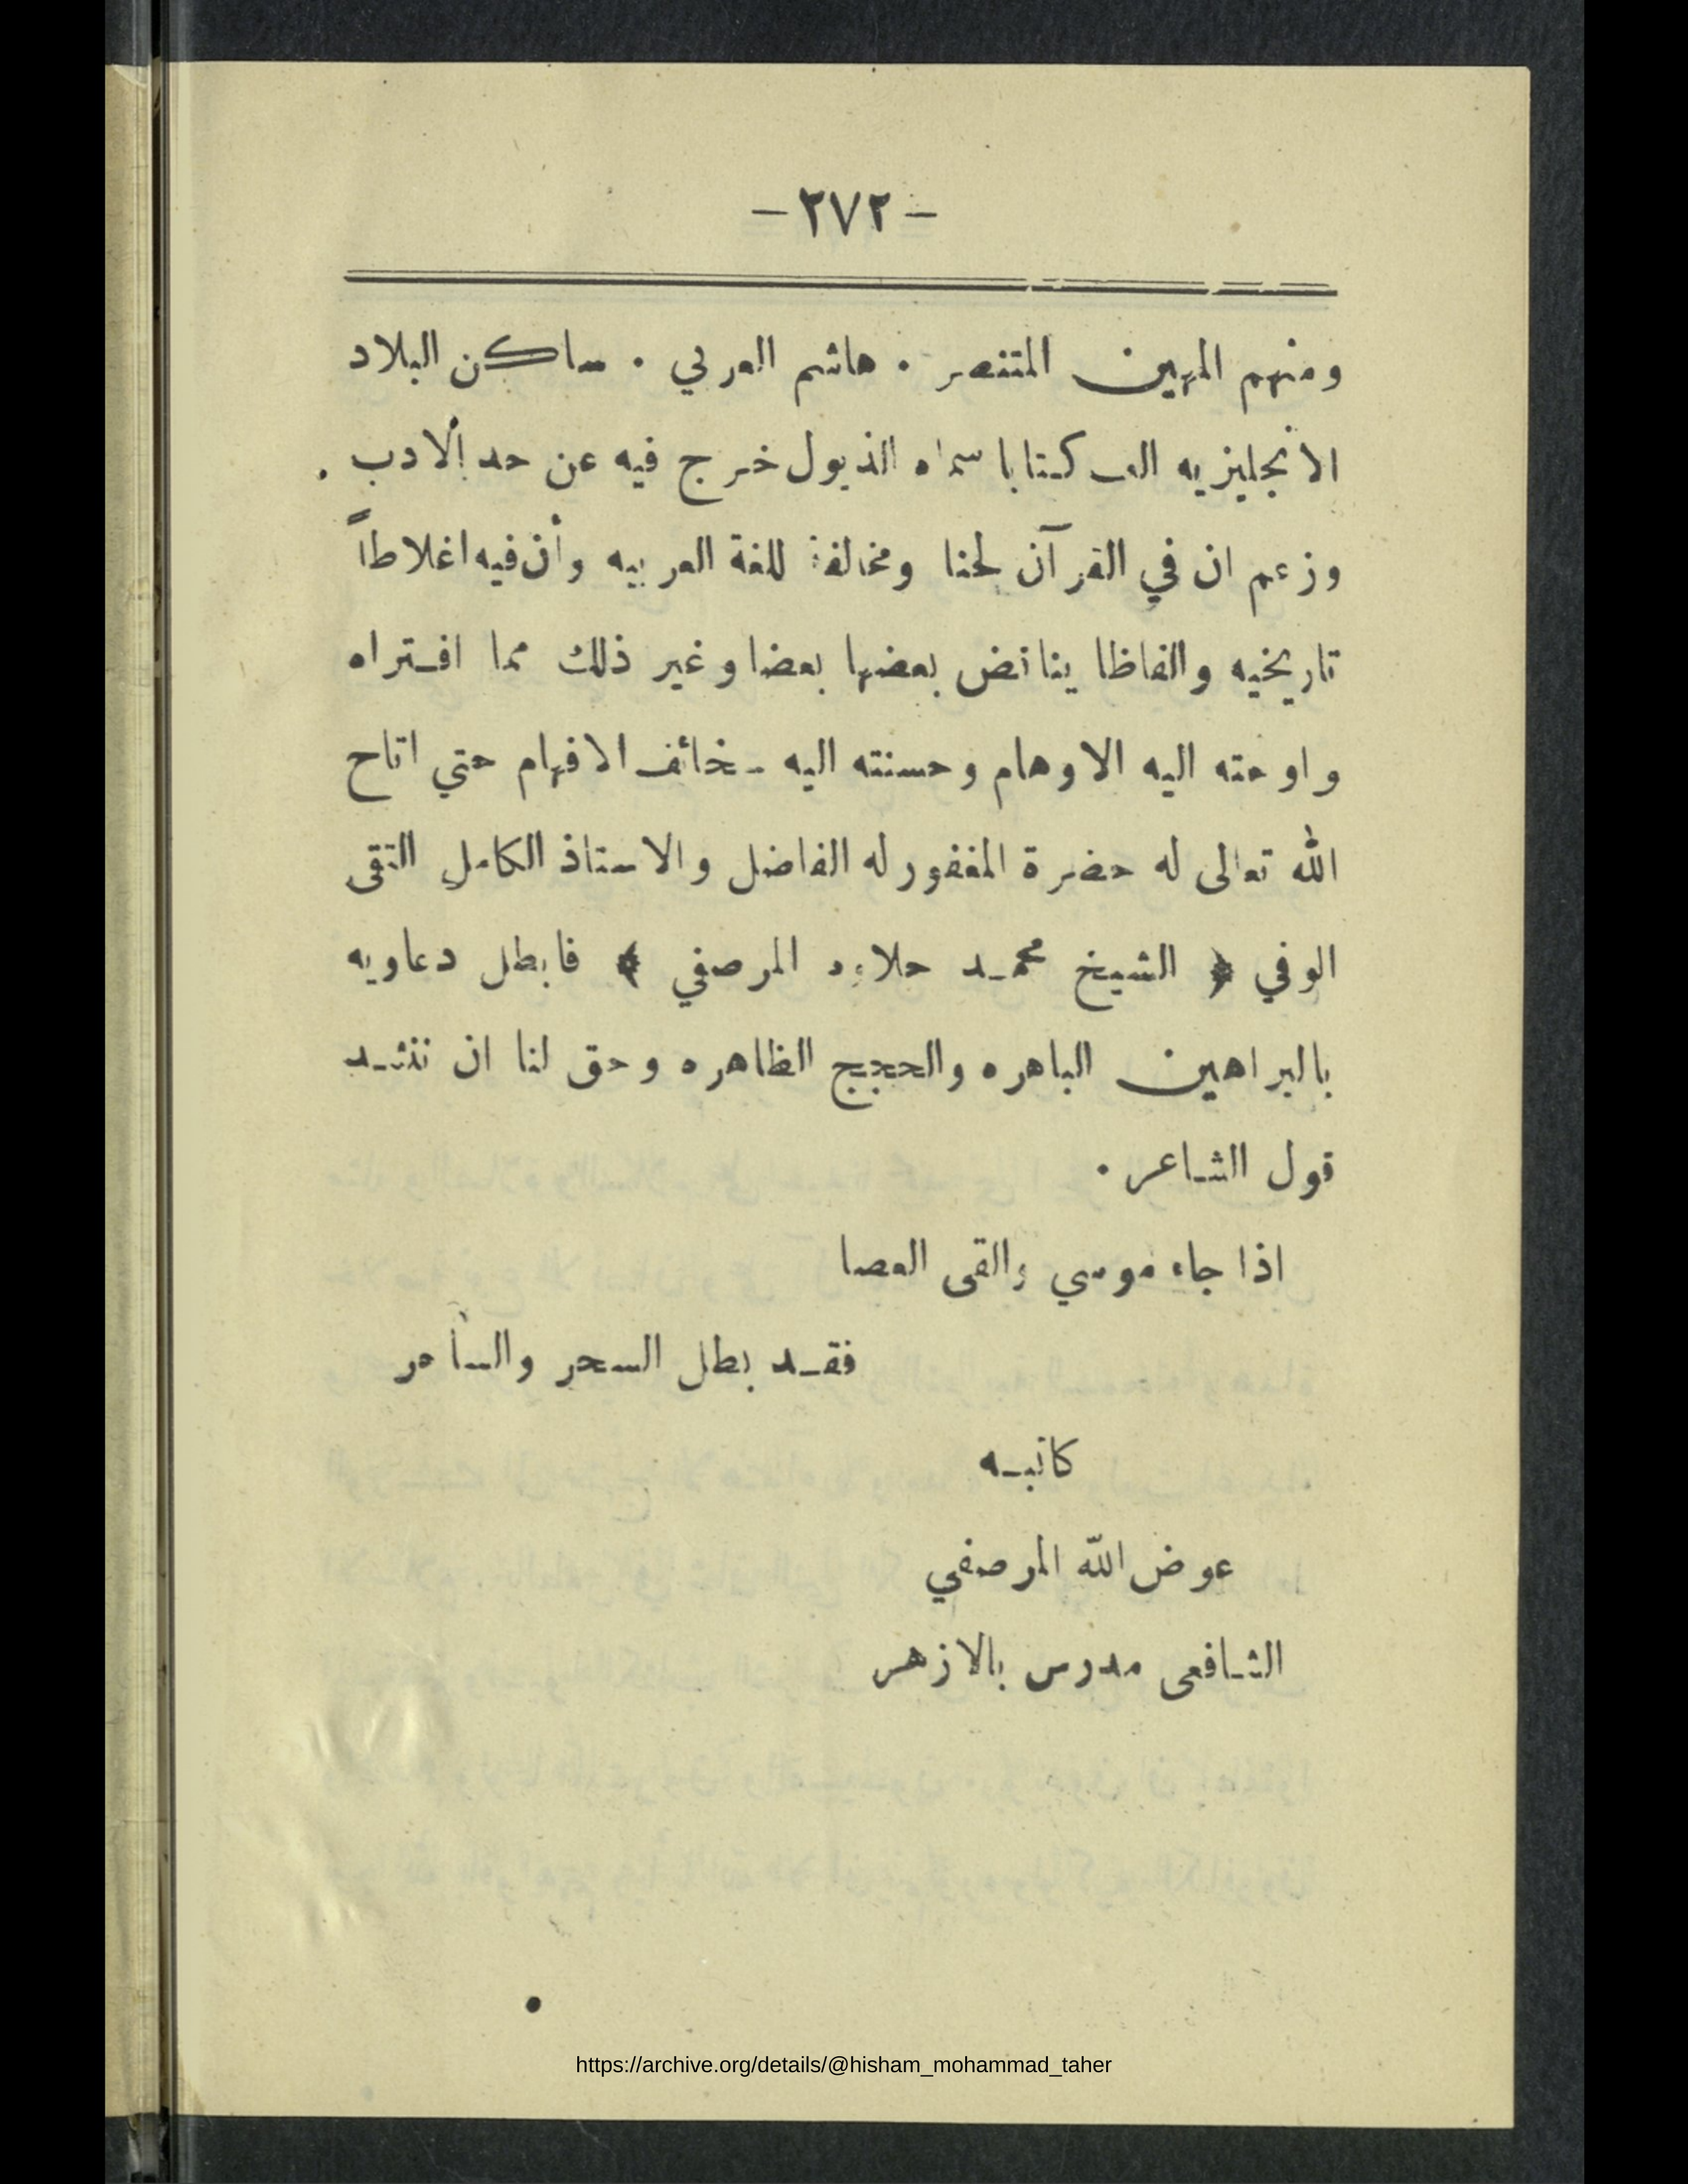 - ٢٧٢ -
ومنهم المهين المتنصر . هاشم العربي . ساكن البلاد
الانجليزيه الف كتابا سماه الذيول خرج فيه عن حد الادب .
وزعم ان في القرآن لحنا ومخالفة للغة العربيه وأن فيه اغلاطاً
تاريخيه والفاظا يناقض بعضها بعضا وغير ذلك مما افتراه
واوحته اليه الاوهام وحسنته اليه سخائف الافهام حتي اتاح
الله تعالى له حضرة المغفور له الفاضل والاستاذ الكامل التقى
الوفي ﴿ الشيخ محمد حلاوه المرصفي ﴾ فابطل دعاويه
بالبراهين الباهره والحجج الظاهره وحق لنا ان ننشد
قول الشاعر .
اذا جاء موسي والقى العصا
فقد بطل السحر والساحر
كاتبه
عوض الله المرصفي
الشافعى مدرس بالازهر
https://archive.org/details/@hisham_mohammad_taher